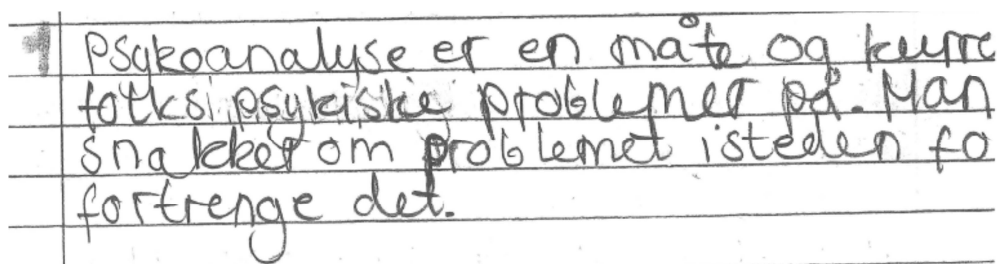 1 Psykoanalyse er en måte og kurre
folks psykiske problemer på. Man
snakker om problemet isteden fo
fortrenge det.